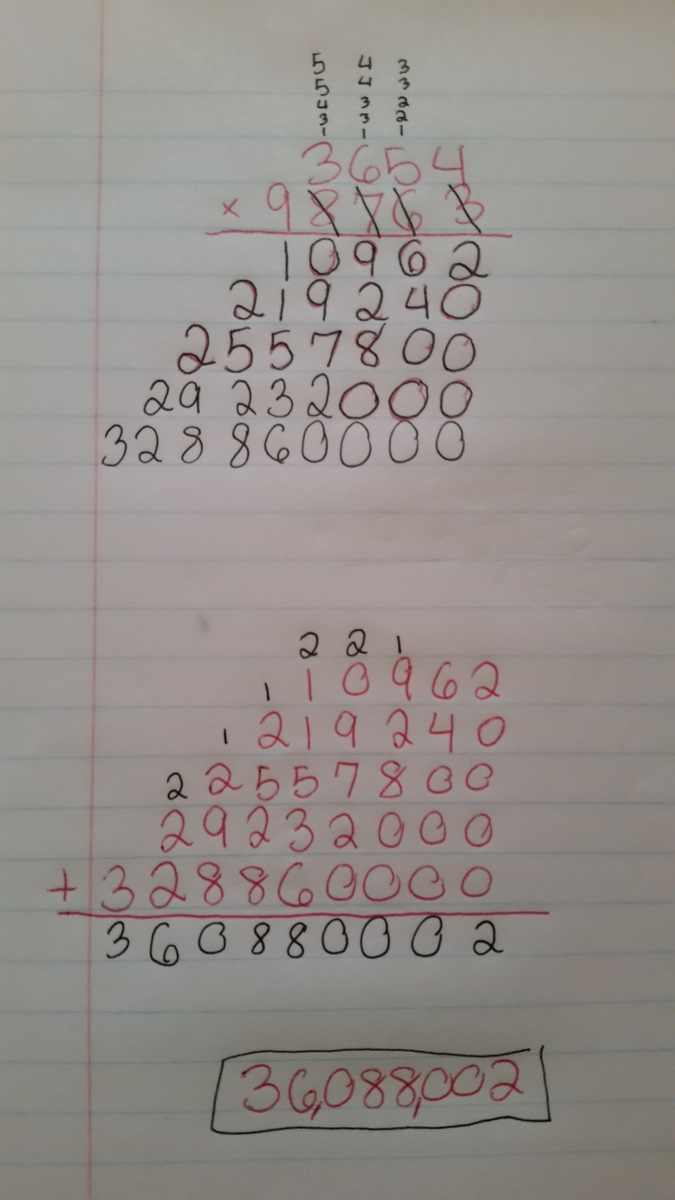 5 4 3
5 4 3
4 3 2
3 3 2
1 1 1
3654
× 98763
10962
219240
2557800
29232000
328860000
2 2 1
1 10962
1 219240
2 2557800
29232000
+ 328860000
360880002
36,088,002